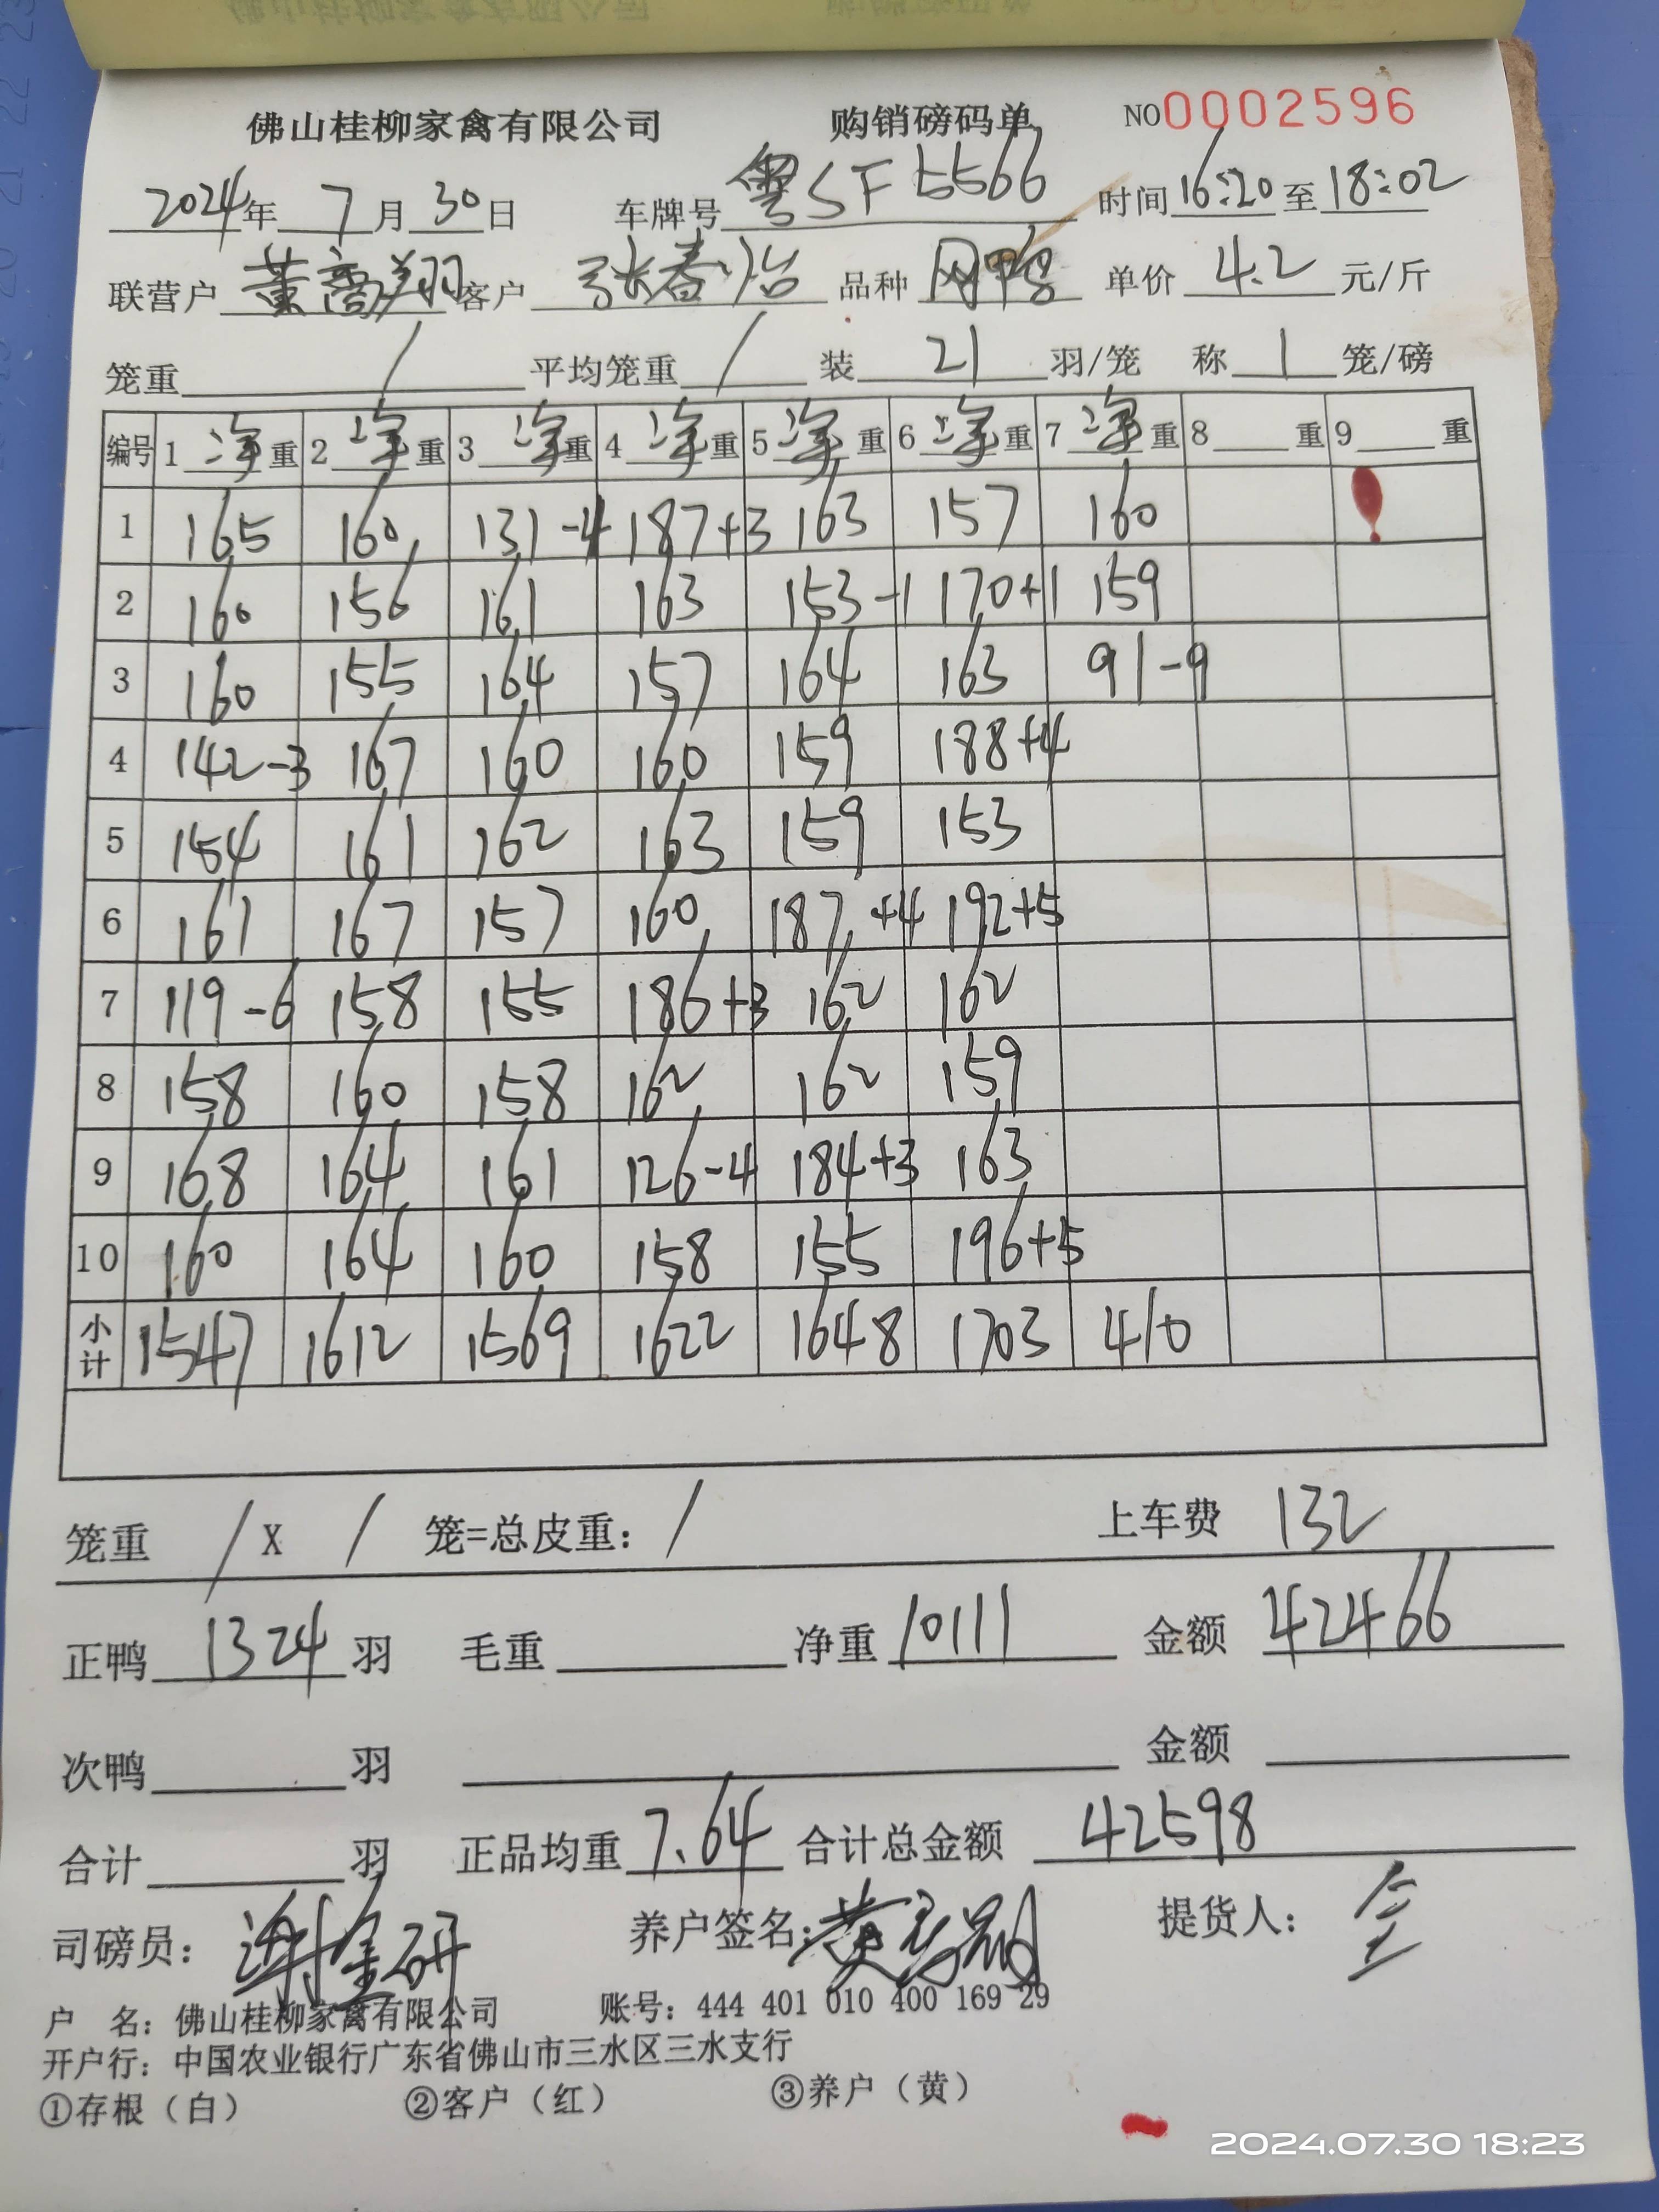 佛山桂柳家禽有限公司 购销磅码单 NO0002596
2024年 7月30日 车牌号 粤SF5566 时间16:20至18:02
联营户 黄高翔 客户 张春怡 品种 冈鸭 单价 4.2 元/斤
笼重 / 平均笼重 / 装 21 羽/笼 称 1 笼/磅
编号 1 净 重 2 净 重 3 净 重 4 净 重 5 净 重 6 净 重 7 净 重 8 重 9 重
1 165 160 131-4 187+3 163 157 160
2 160 156 161 163 153-1 170+1 159
3 160 155 164 157 164 163 91-9
4 142-3 167 160 160 159 188+4
5 154 161 162 163 159 153
6 161 167 157 160 187+4 192+5
7 119-6 158 155 186+3 162 162
8 158 160 158 162 162 159
9 168 164 161 126-4 184+3 163
10 160 164 160 158 155 196+5
小计 1547 1612 1569 1622 1648 1703 410
笼重 / X / 笼=总皮重: / 上车费 132
正鸭 1324 羽 毛重 净重 10111 金额 42466
次鸭 羽 金额
合计 羽 正品均重 7.64 合计总金额 42598
司磅员: 谢金研 养户签名: 黄高翔 提货人: 全
户 名: 佛山桂柳家禽有限公司 账号: 444 401 010 400 169 29
开户行: 中国农业银行广东省佛山市三水区三水支行
①存根(白) ②客户(红) ③养户(黄)
2024.07.30 18:23